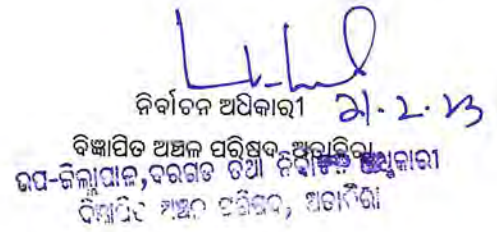 ନିର୍ବାଚନ ଅଧିକାରୀ 21.2.23
ବିଜ୍ଞାପିତ ଅଞ୍ଚଳ ପରିଷଦ, ଅତାବିରା
ଉପ-ଜିଲ୍ଲାପାଳ, ବରଗଡ ତଥା ନିର୍ବାଚନ ଅଧିକାରୀ
ବିଜ୍ଞାପିତ ଅଞ୍ଚଳ ପରିଷଦ, ଅତାବିରା